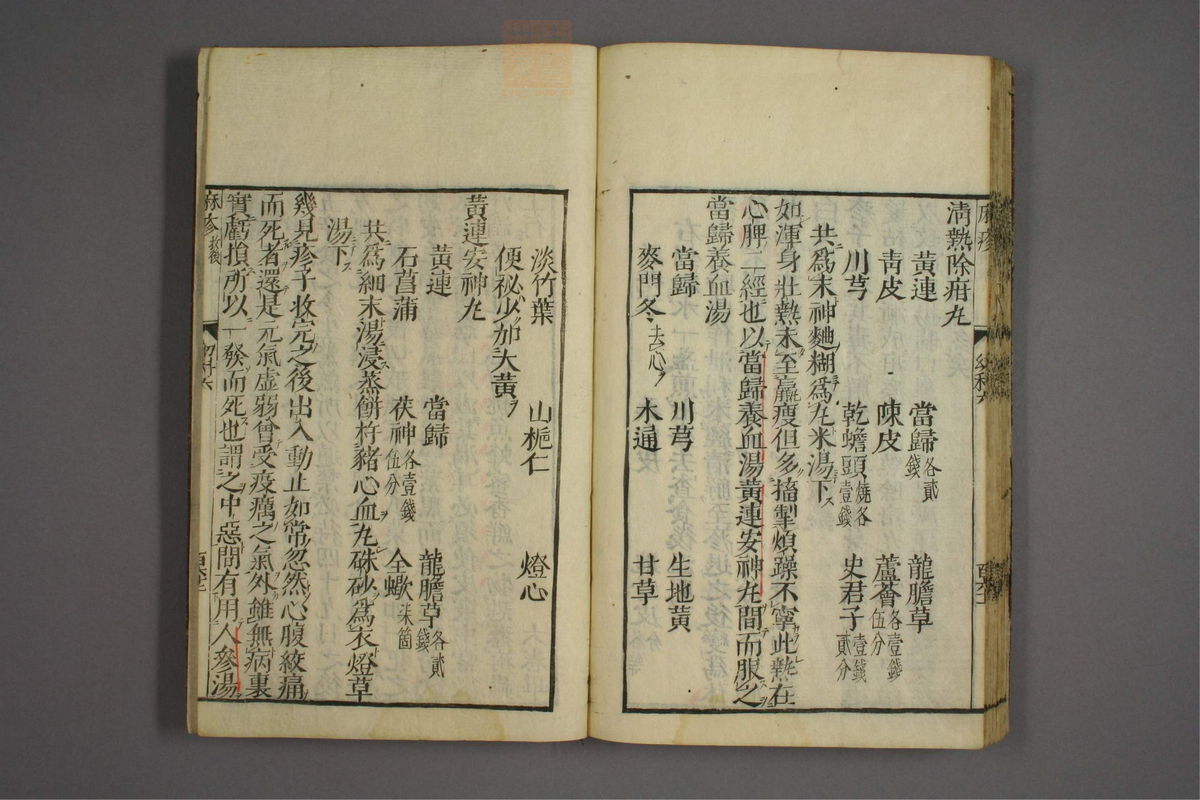 麻疹
清熱除疳丸
黃連 當歸各貳錢 龍膽草
靑皮 陳皮 蘆薈各壹錢伍分
川芎 乾蟾頭燒各壹錢 史君子壹錢貳分
共爲末神麯糊爲丸米湯下ス
如渾身壯熱未至羸瘦但多搐掣煩躁不寧此熱在
心脾二經也以當歸養血湯黃連安神丸間而服之
當歸養血湯
當歸 川芎 生地黃
麥門冬去心ヲ 木通 甘草
淡竹葉 山梔仁 燈心
便秘少加大黃ヲ
黃連安神丸
黃連 當歸 龍膽草各貳錢
石菖蒲 茯神各壹錢伍分 全蠍柒箇
共爲細末湯浸蒸餅杵豬心血丸硃砂爲衣燈草
湯下ス
幾見疹子收完之後出入動止如常忽然心腹絞痛
而死者還是元氣虛弱曾受疫癘之氣外雖無病裏
實虧損所以一發而死也謂之中惡間有用人參湯
麻疹